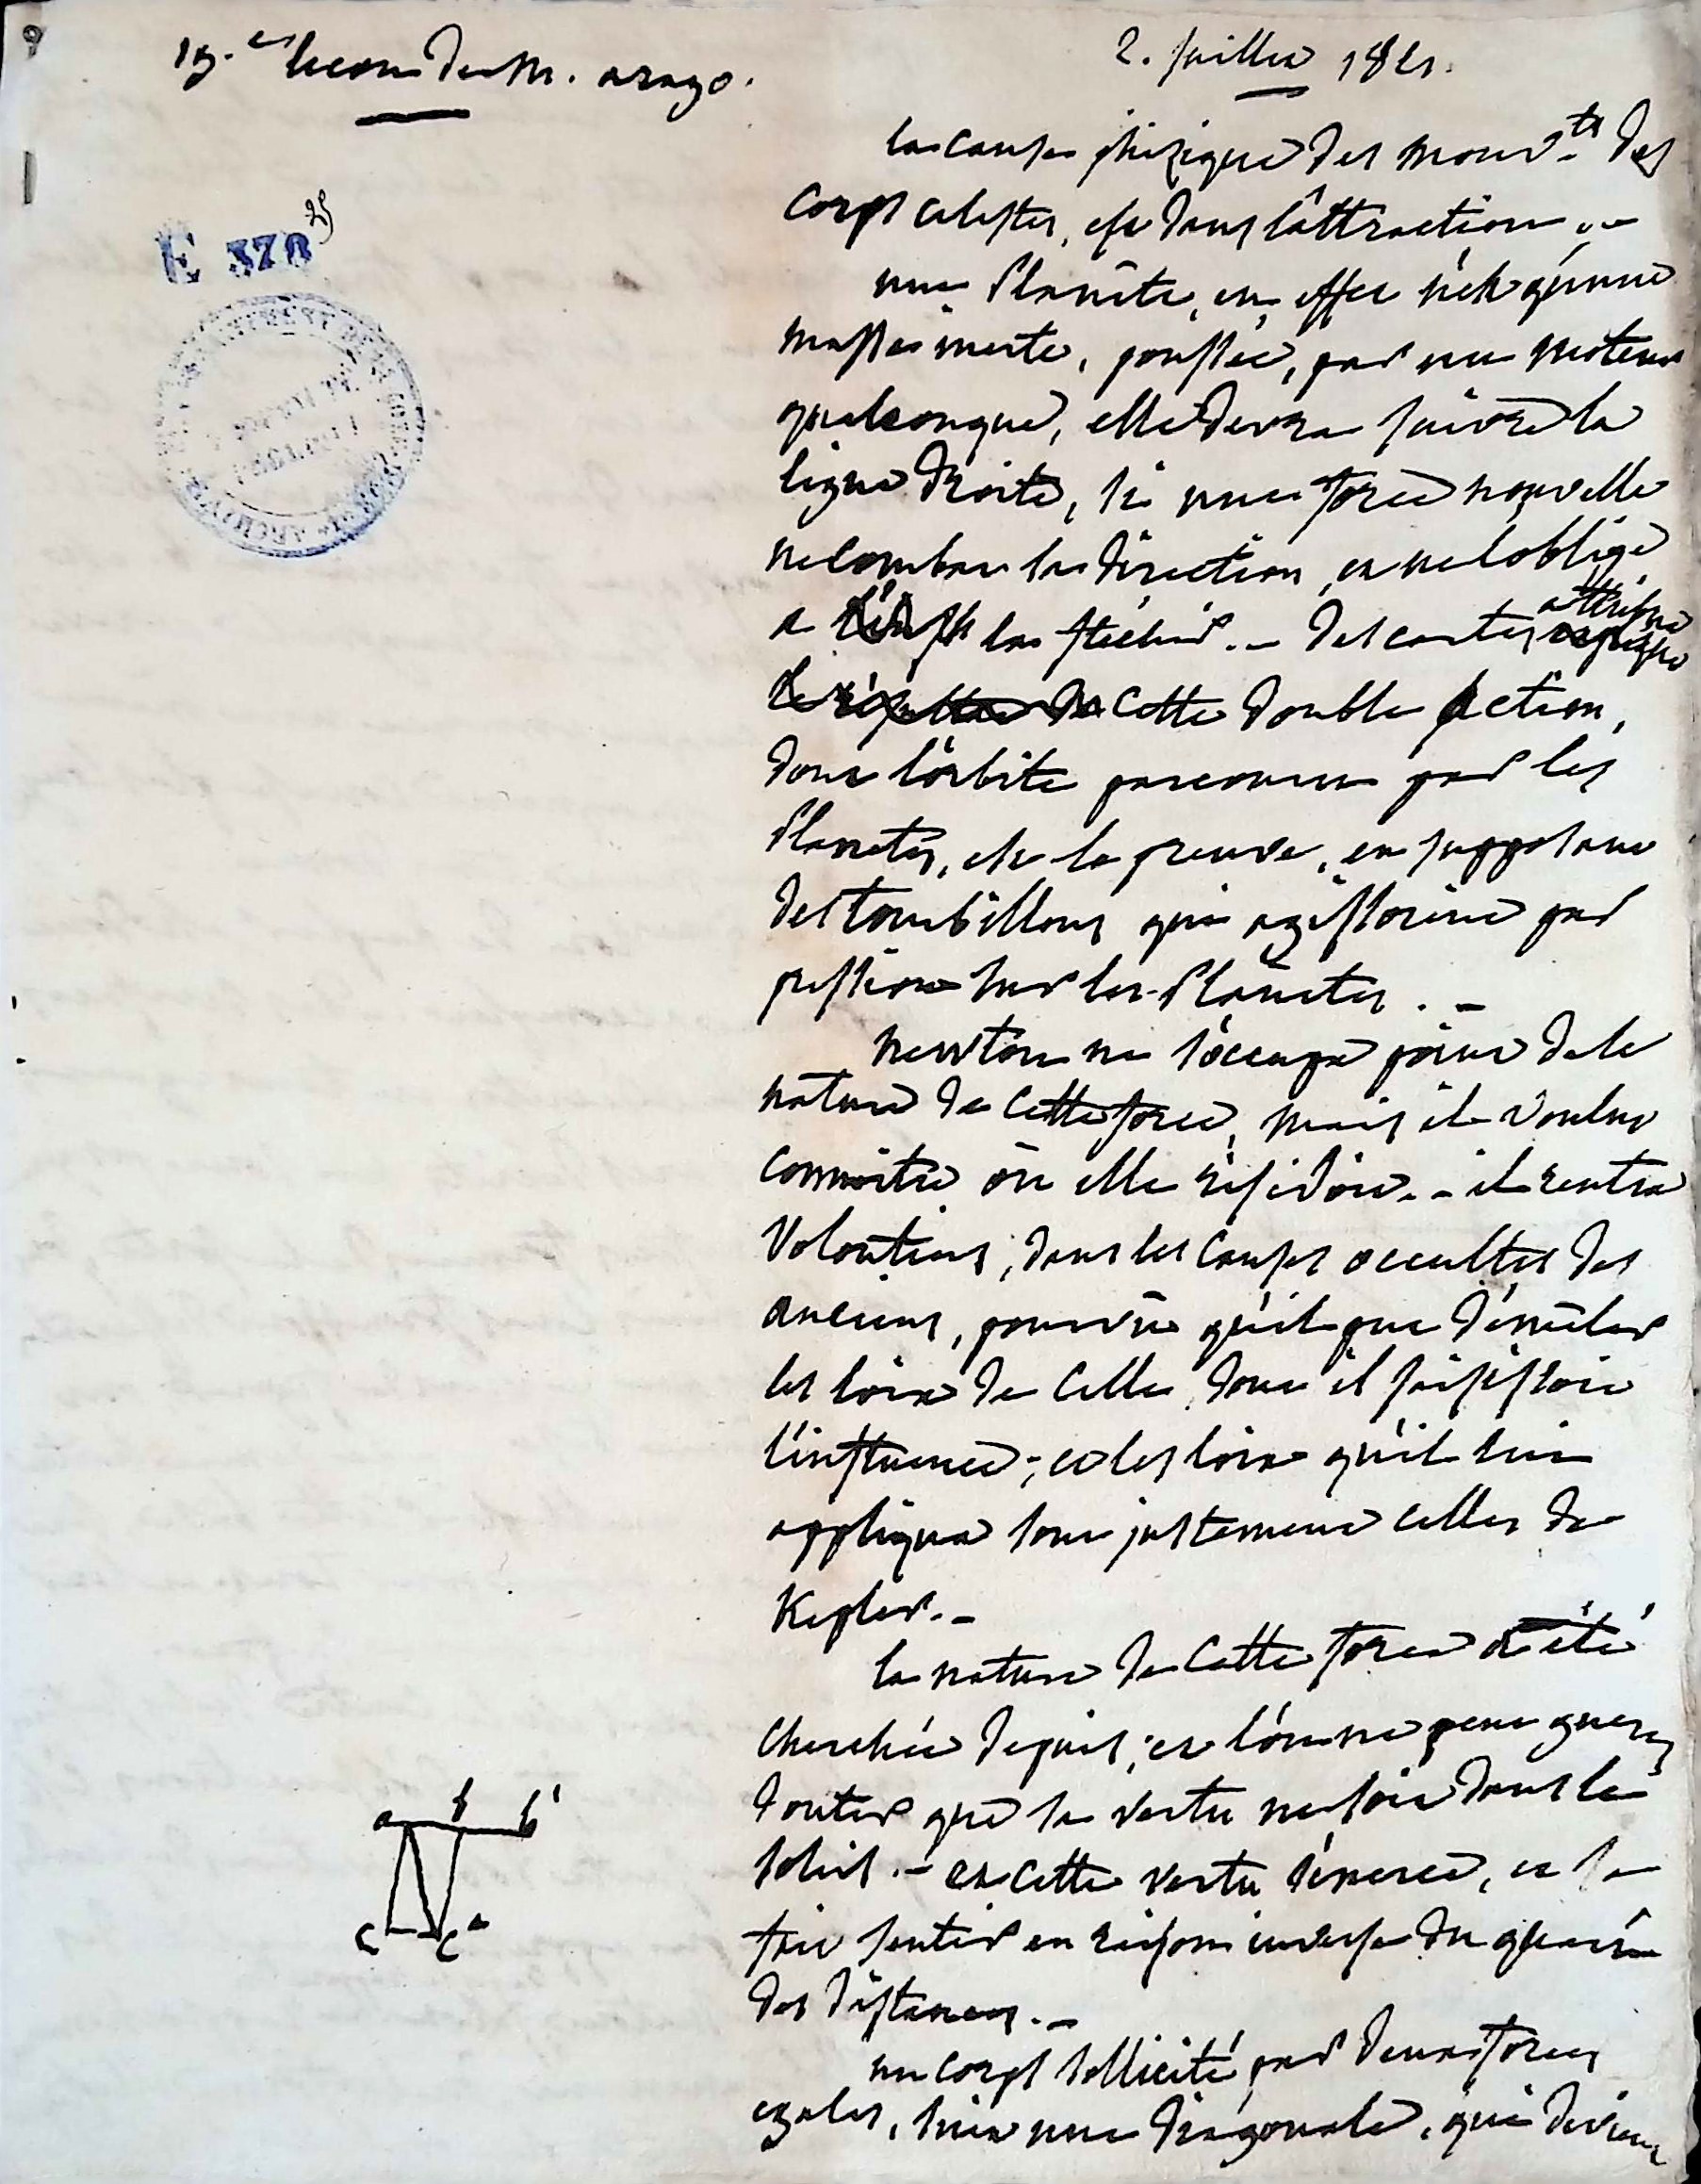 9
15.e lecon de M. arago.
2. juillet 1821.
E 378 25
la cause phizique des mouv.ts des
corps celestes, est dans l'attraction. —
une Planète, en effet n'est qu'une
masse inerte, poussée, par un moteur
quelconque, elle devra suivre la
ligne droite, si une force nouvelle
ne combat sa direction, et ne l'oblige
a la fléchir. — descartes attribue
cette double action,
dont l'orbite parcourue par les
Planetes, est la preuve, en supposant
des tourbillons qui agissoient par
pression sur les Planètes. —
newton ne s'occupa point de la
nature de cette force, mais il voulut
connoitre où elle résidoit. — il rentra
volontiers, dans les causes occultes des
anciens, pourvu qu'il put déméler
les loix de celle, dont il saisissoit
l'influence; et les loix qu'il lui
appliqua sont justement celles de
Kepler. —
la nature de cette force a été
cherchée depuis; et l'on ne peut guere
douter que sa vertu ne soit dans le
soleil. — et cette vertu s'exerce, et se
fait sentir en raison inverse du quarré
des distances. —
a b b'
c c'
un corps sollicité par deux forces
egales, suit une diagonale, qui devient